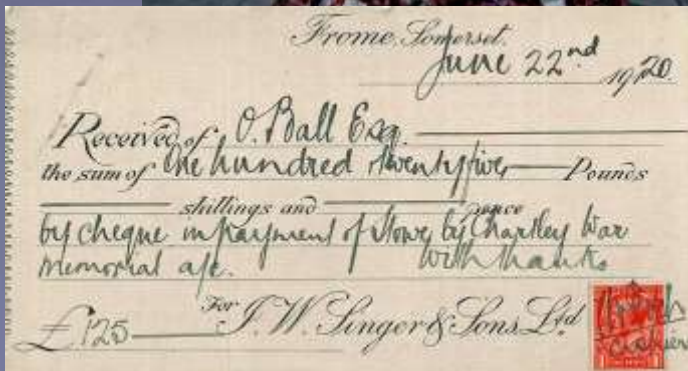 Frome, Somerset.
June 22nd 1920.
Received of O. Ball Esq.
the sum of One hundred & twenty five Pounds
shillings and pence
by cheque in payment of Stowe by Chartley War
Memorial a/c. With thanks
For J. W. Singer & Sons, Ltd
£125
cashier